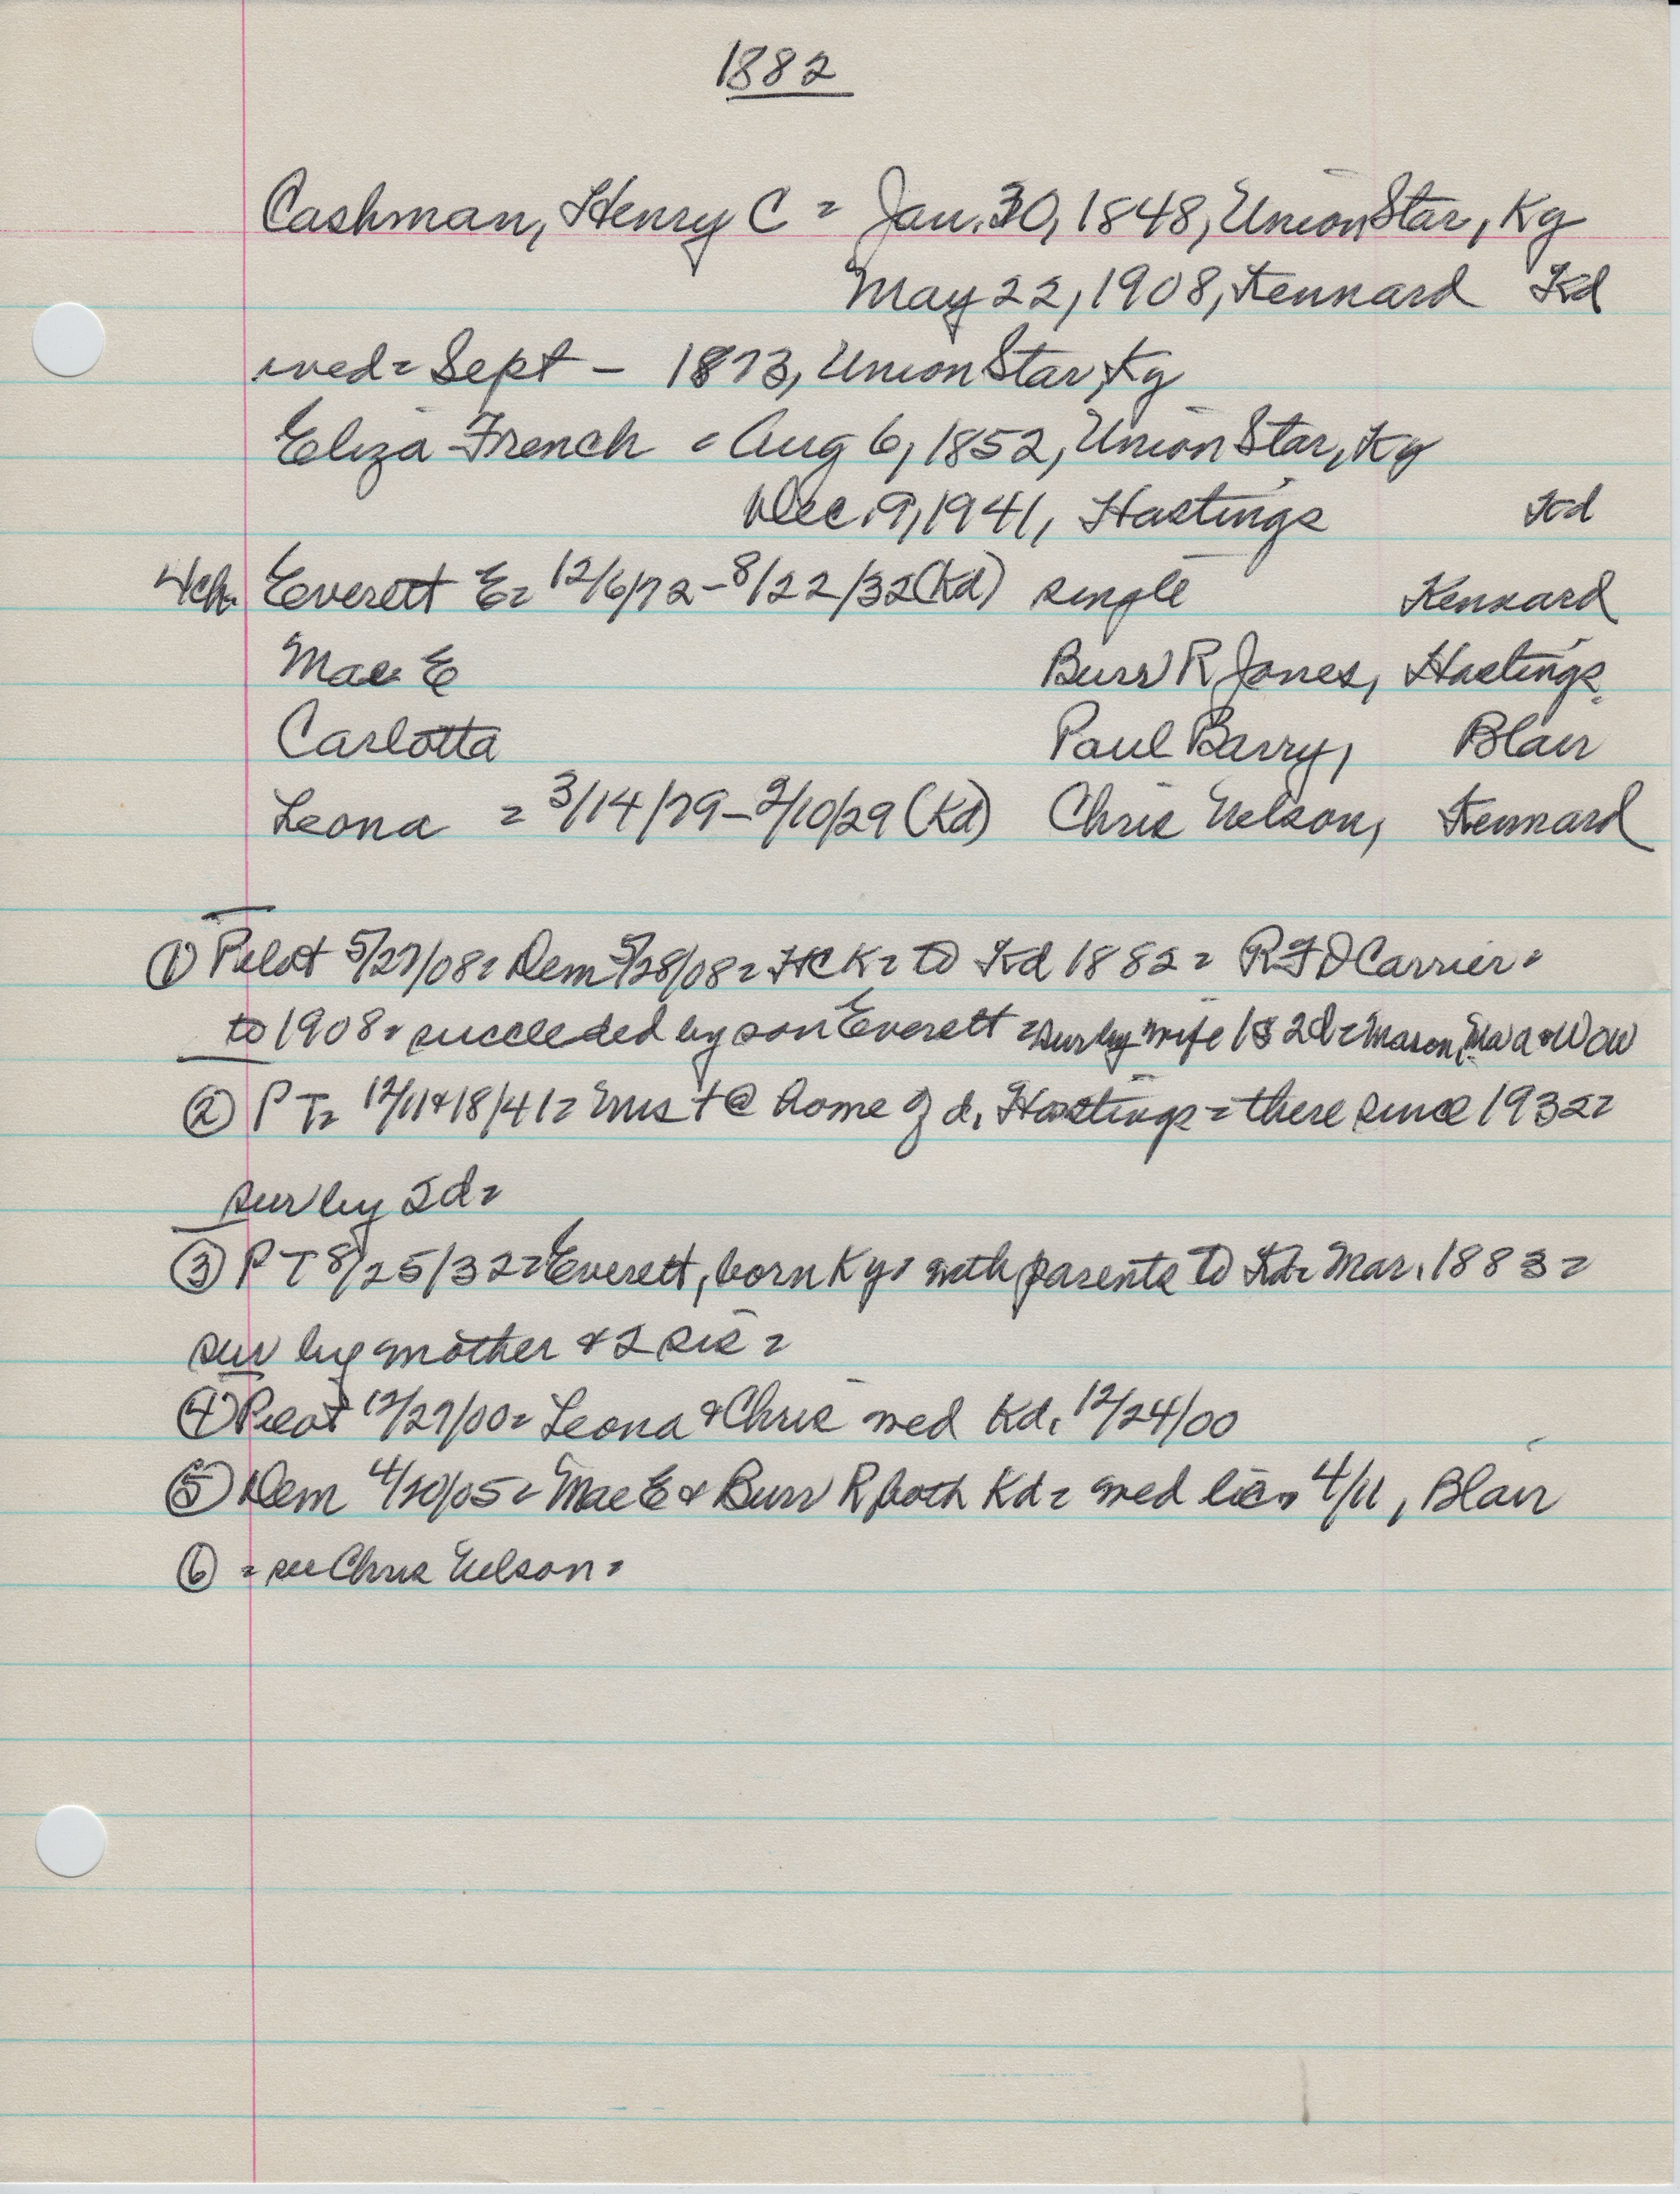 1882
Cashman, Henry C = Jan. 30, 1848, Union Star, Ky
May 22, 1908, Kennard Kd
med = Sept - 1873, Union Star, Ky
Eliza French = Aug 6, 1852, Union Star, Ky
Dec. 9, 1941, Hastings Kd
4 ch. Everett E = 12/6/72 - 8/22/32 (Kd) single Kennard
Mae E Burr R Jones, Hastings
Carlotta Paul Barry, Blair
Leona = 3/14/79 - 2/10/29 (Kd) Chris Nelson, Kennard
① Pilot 5/27/08 = Dem 5/28/08 = to Kd 1882 = RFD Carrier =
to 1908 = succeeded by son Everett = sur by wife 1s 2d = Mason, & WOW
② PT = 12/11 & 18/41 = Mrs † @ home of d, Hastings = there since 1932 =
sur by 2d =
③ PT 8/25/32 = Everett, born Ky = with parents to Kd = Mar. 1883 =
sur by mother & 2 sis =
④ Pilot 12/27/00 = Leona & Chris med Kd, 12/24/00
⑤ Dem 4/20/05 = Mae E & Burr R both Kd = med lic = 4/11, Blair
⑥ = see Chris Nelson =